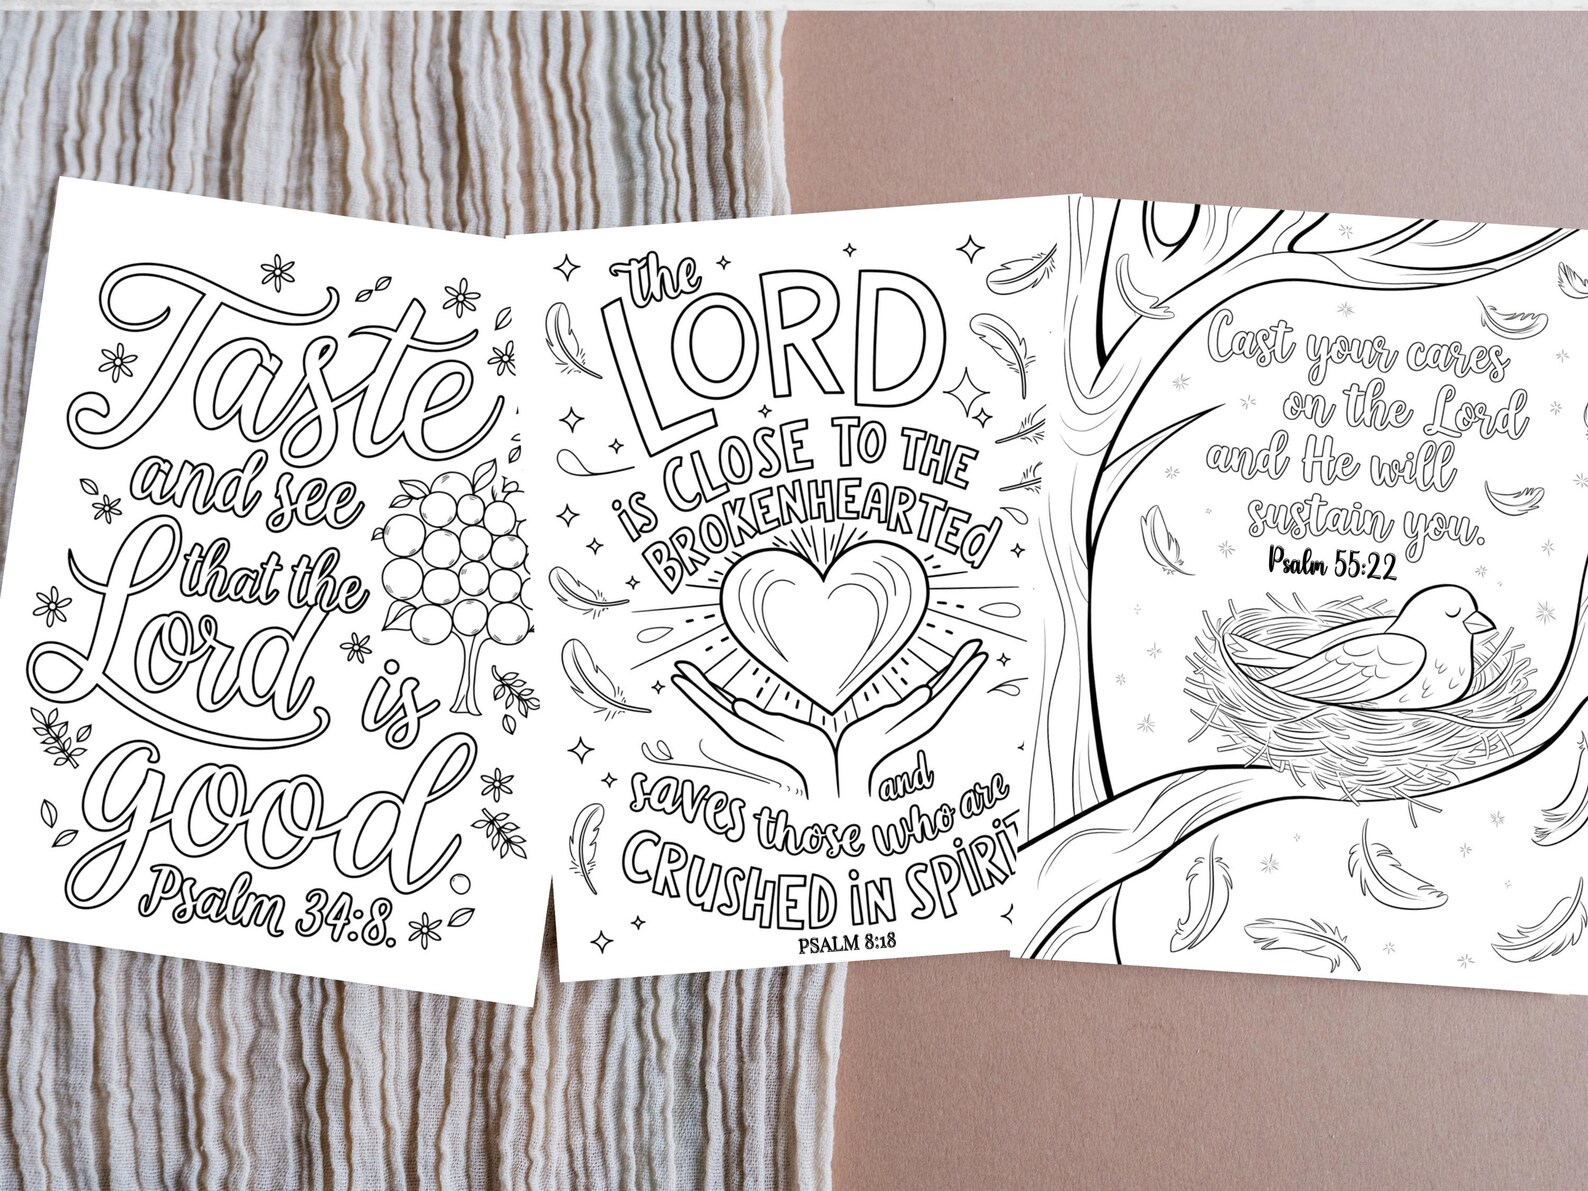 Taste
and see
that the
Lord is
good.
Psalm 34:8.
the
LORD
is CLOSE TO THE
BROKENHEARTED
and
saves those who are
CRUSHED iN SPiRi
PSALM 8:18
Cast your cares
on the Lord
and He will
sustain you.
Psalm 55:22